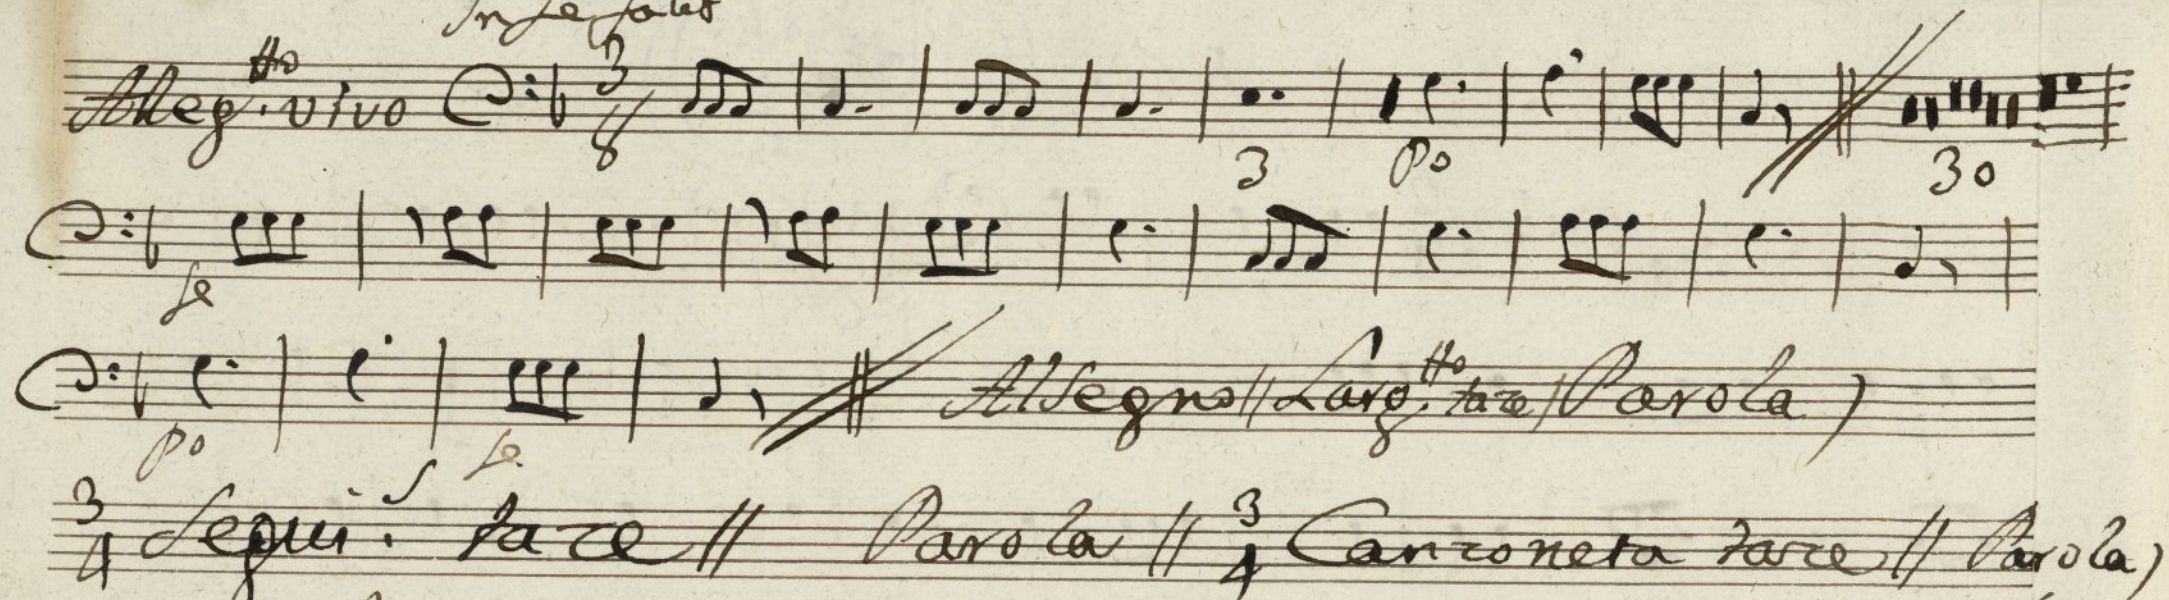 In Fe faut
Alleg.tto vivo 3 8
3 po 30
fe
po fe
Al Segno // Larg.tto taze / Parola )
3 4 Segui.s taze // Parola // 3 4 Canzoneta taze // Parola )